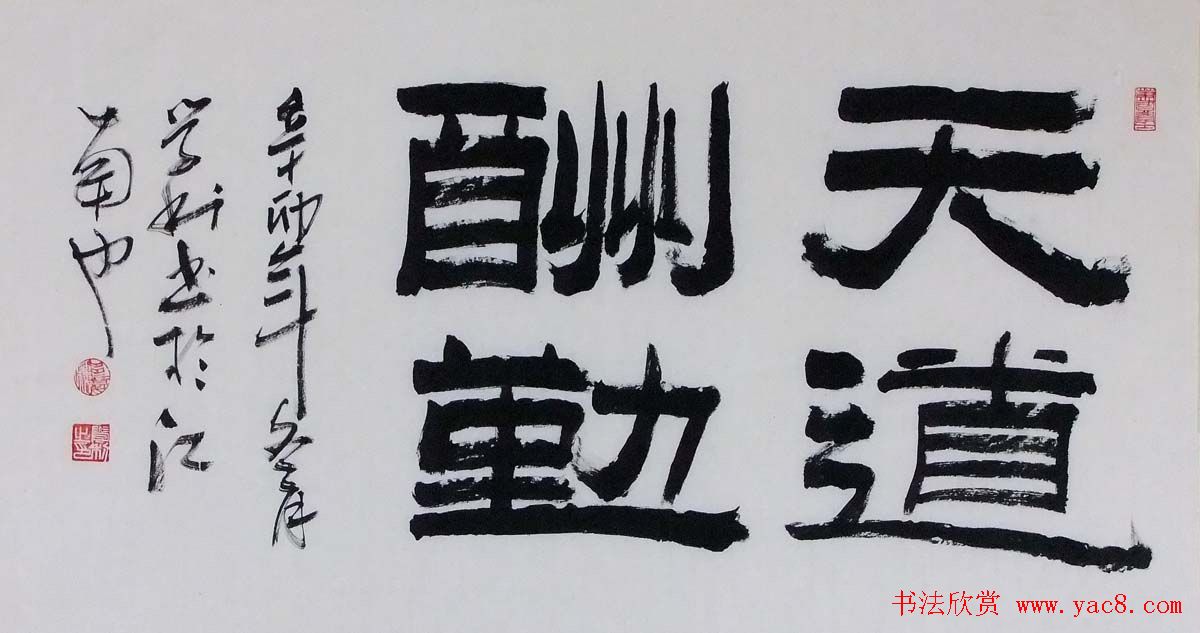 天道
酬勤
辛卯年冬月
学彬书於江
南也
书法欣赏 www.yac8.com